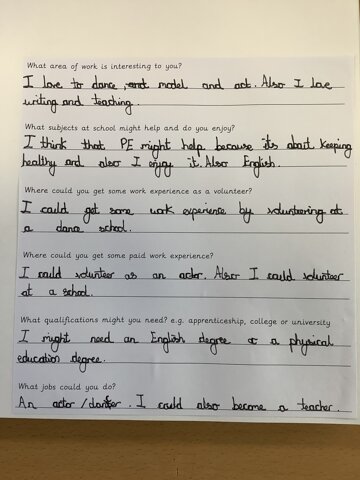 What area of work is interesting to you?
I love to dance, model and act. Also I love
writing and teaching.
What subjects at school might help and do you enjoy?
I think that PE might help because its about keeping
healthy and also I enjoy it. Also English.
Where could you get some work experience as a volunteer?
I could get some work experience by voluntering at
a dance school.
Where could you get some paid work experience?
I could volunteer as an actor. Also I could volunteer
at a school.
What qualifications might you need? e.g. apprenticeship, college or university
I might need an English degree or a physical
education degree.
What jobs could you do?
An actor/dancer. I could also become a teacher.